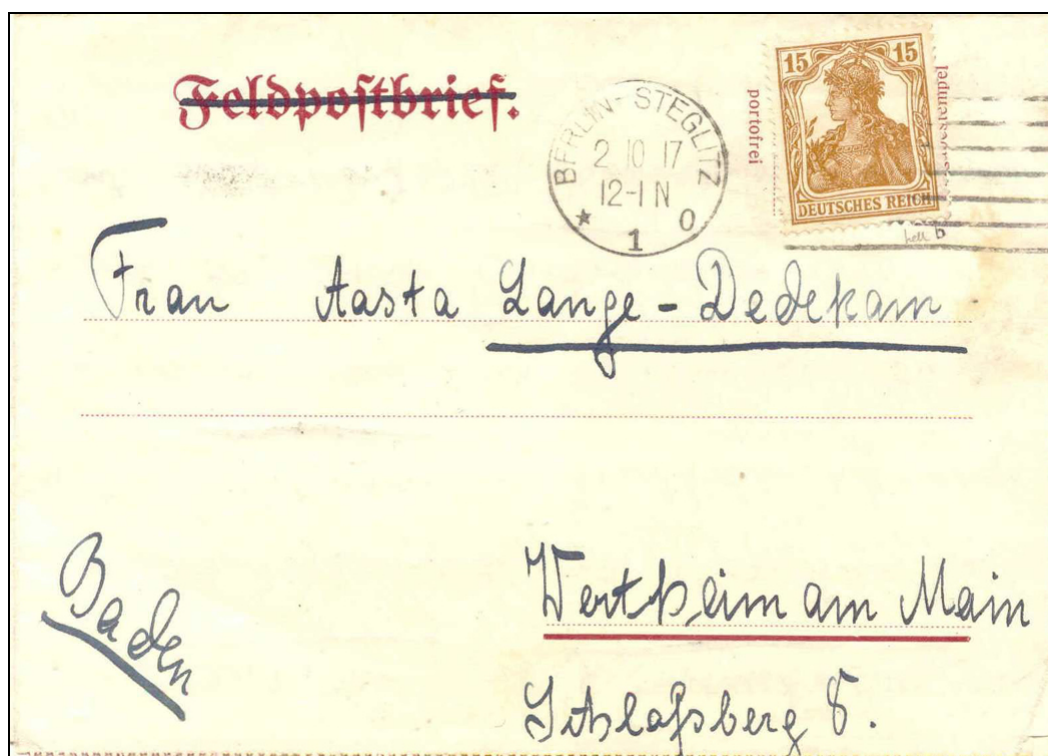 Feldpostbrief.
BERLIN-STEGLITZ
2 10 17
12-1 N
* 1 o
portofrei
15 15
DEUTSCHES REICH
hell b
Frau Aasta Lange-Dedekam
Baden
Wertheim am Main
Schloßberg 8.